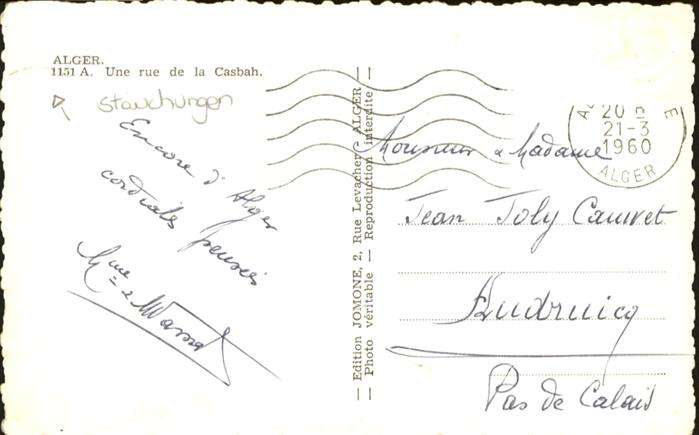 ALGER.
1151 A. Une rue de la Casbah.
stauchungen
Encore d'Alger
cordiales pensées
Mme & Massot
— Edition JOMONE, 2, Rue Levacher - ALGER —
— Photo véritable — Reproduction interdite —
20 H
21-3
1960
ALGER
Monsieur & Madame
Jean Joly Cauvet
Audruicq
Pas de Calais